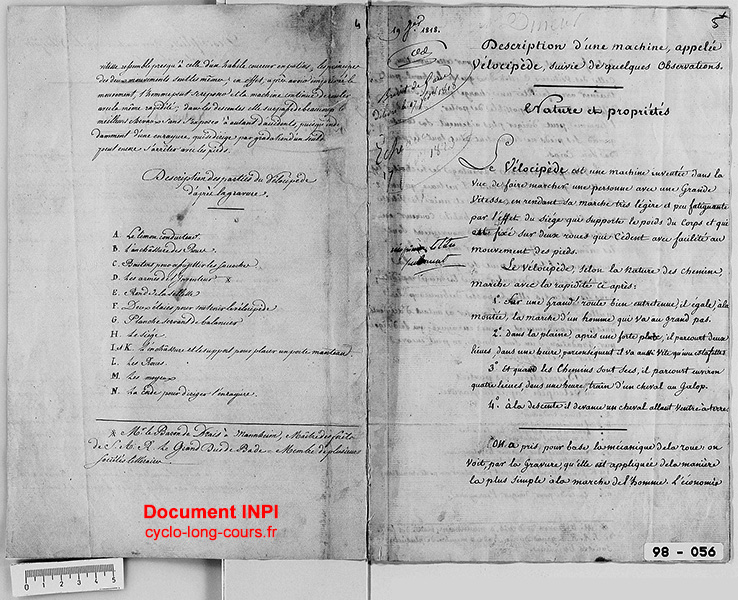 4
vitesse ressemble presque à celle d'un habile coureur en patins, les principes
des deux mouvements sont les mêmes: en effet, après avoir imprimé le
mouvement, l'homme peut se reposer et la machine continue de rouler
avec la même rapidité; dans les descentes elle surpasse beaucoup les
meilleurs chevaux sans s'exposer à autant d'accidents, puisqu'indé-
damment d'une enrayure, qu'on dirige par gradation d'un seul
peut encore s'arrêter avec les pieds.
Description des parties du Vélocipède
d'après la gravure.
A. Le timon conducteur.
B. L'enchassure des Roues.
C. Boutons pour assujettir les
D. Les armes de l'inventeur x
E. Rond de la sellette
F. Deux étaies pour soutenir le vélocipède
G. Planche servant de balancier
H. Le Siège.
I et K. L'enchassure et le support pour placer un porte manteau
L. Les Roues.
M. Les moyeux
N. La corde pour diriger l'enrayure.
x Mr. le Baron de Drais à Mannheim, Maître des forêts
de S. A. R. Le Grand Duc de Bade. Membre de plusieurs
Sociétés littéraires.
Document INPI
cyclo-long-cours.fr
0 1 2 3 4 5
19 1818.
5
Description d'une machine, appelée
Vélocipède, suivie de quelques Observations.
Nature et propriétés
1820
Le Vélocipède est une machine inventée dans la
vue de faire marcher une personne avec une Grande
Vitesse, en rendant sa marche très légère et peu fatiguante
par l'effet du siège qui supporte le poids du Corps et qui
est fixé sur deux roues qui cèdent avec facilité au
mouvement des pieds.
Le vélocipède, selon la Nature des chemins,
marche avec la rapidité ci après:
1.° Sur une Grand' route bien entretenue, il égale, à la
montée, la marche d'un homme qui va au grand pas.
2.° dans la plaine, après une forte pluie, il parcourt deux
lieues, dans une heure, par conséquent il va aussi vite qu'une estafette.
3.° et quand les Chemins sont secs, il parcourt environ
quatre lieues, dans une heure, train d'un cheval au Galop.
4.° à la descente il devance un cheval allant ventre à terre.
On a pris, pour base, la mécanique de la roue: on
voit, par la Gravure, qu'elle est appliquée de la manière
la plus simple à la marche de l'homme. L'économie
98 - 056